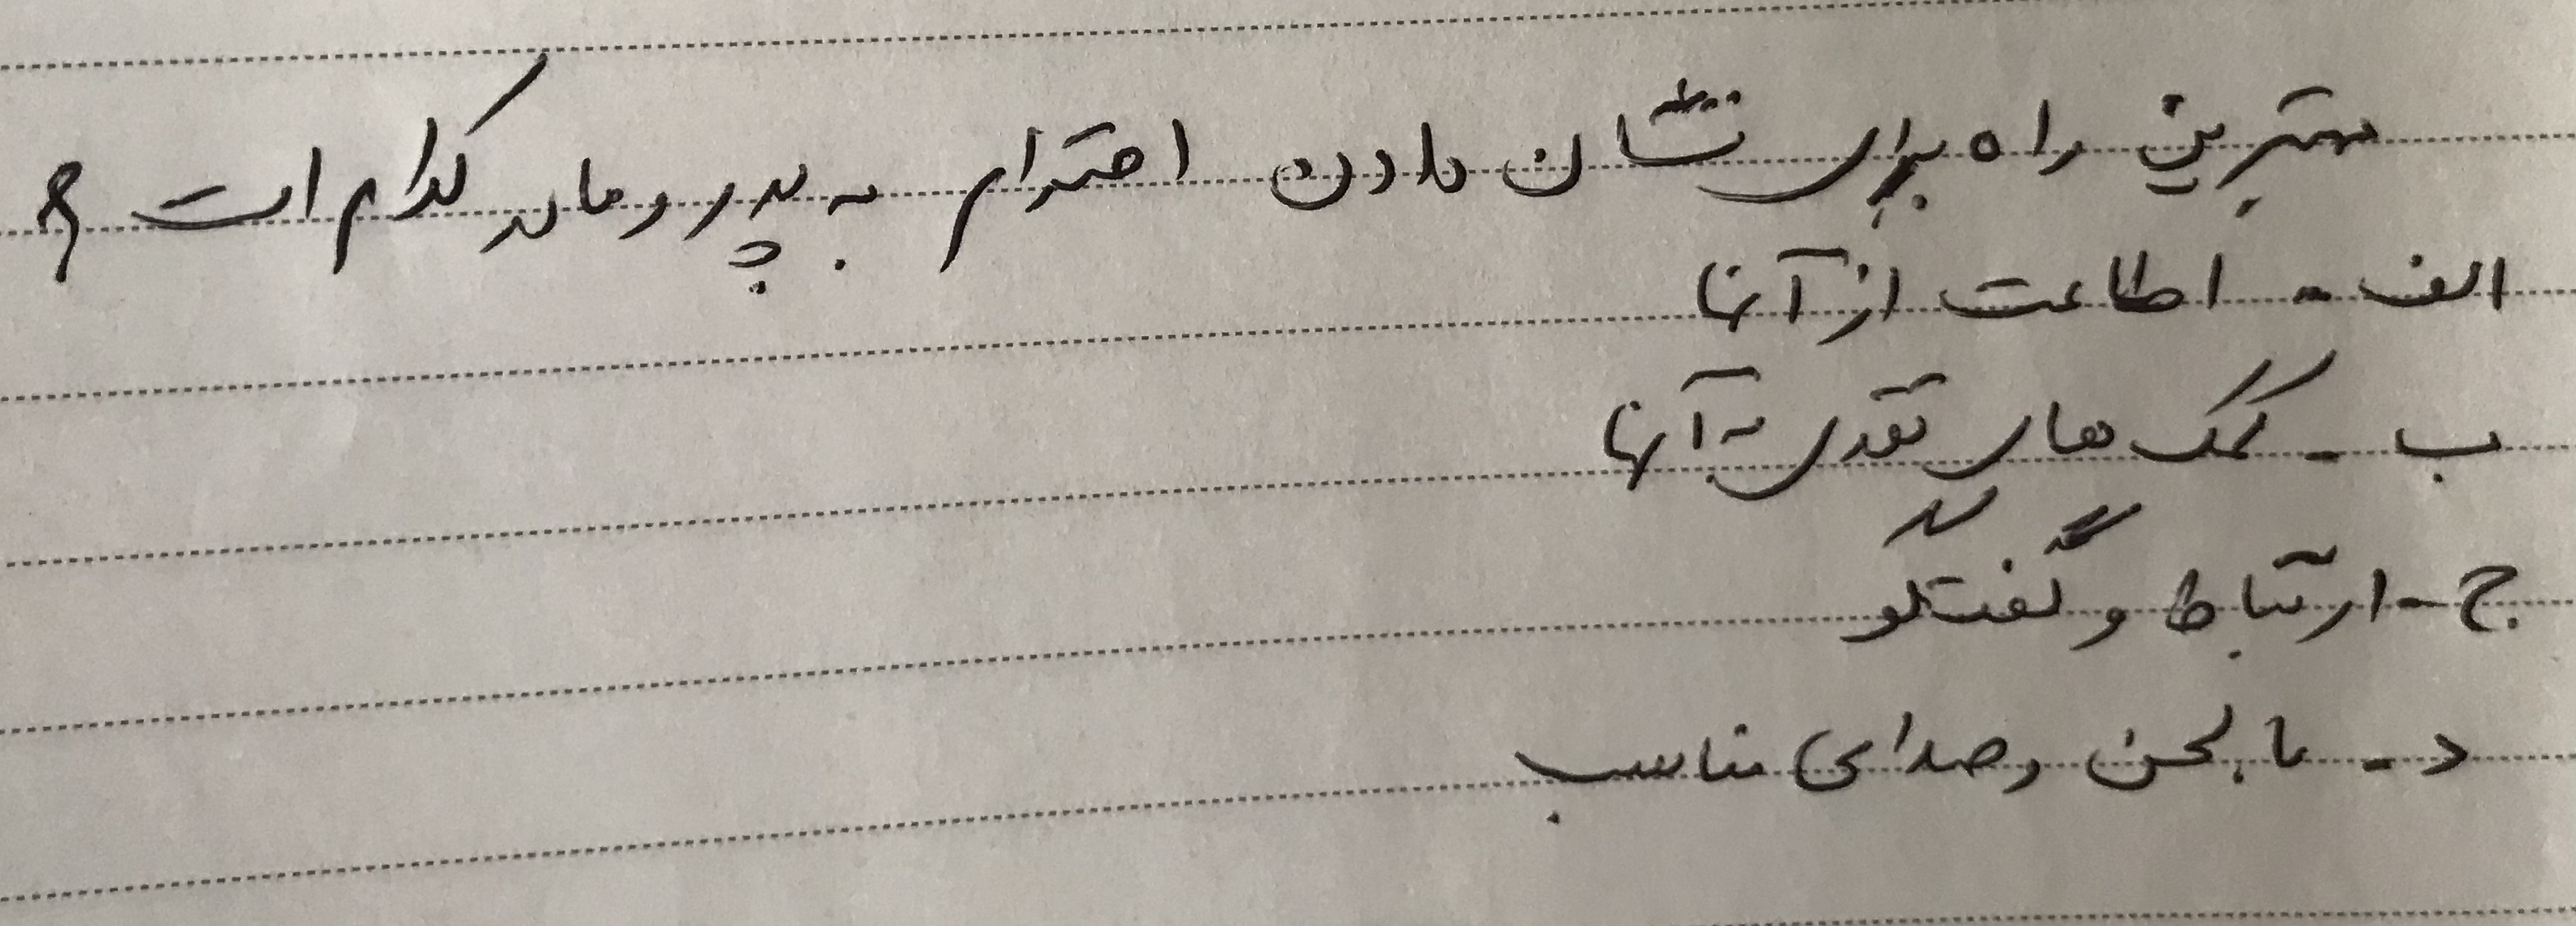 بهترین راه برای نشان دادن احترام به پدر و مادر کدام است ؟
الف - اطاعت از آنها
ب - کمک های نقدی به آنها
ج - ارتباط و گفتگو
د - با لحن و صدای مناسب